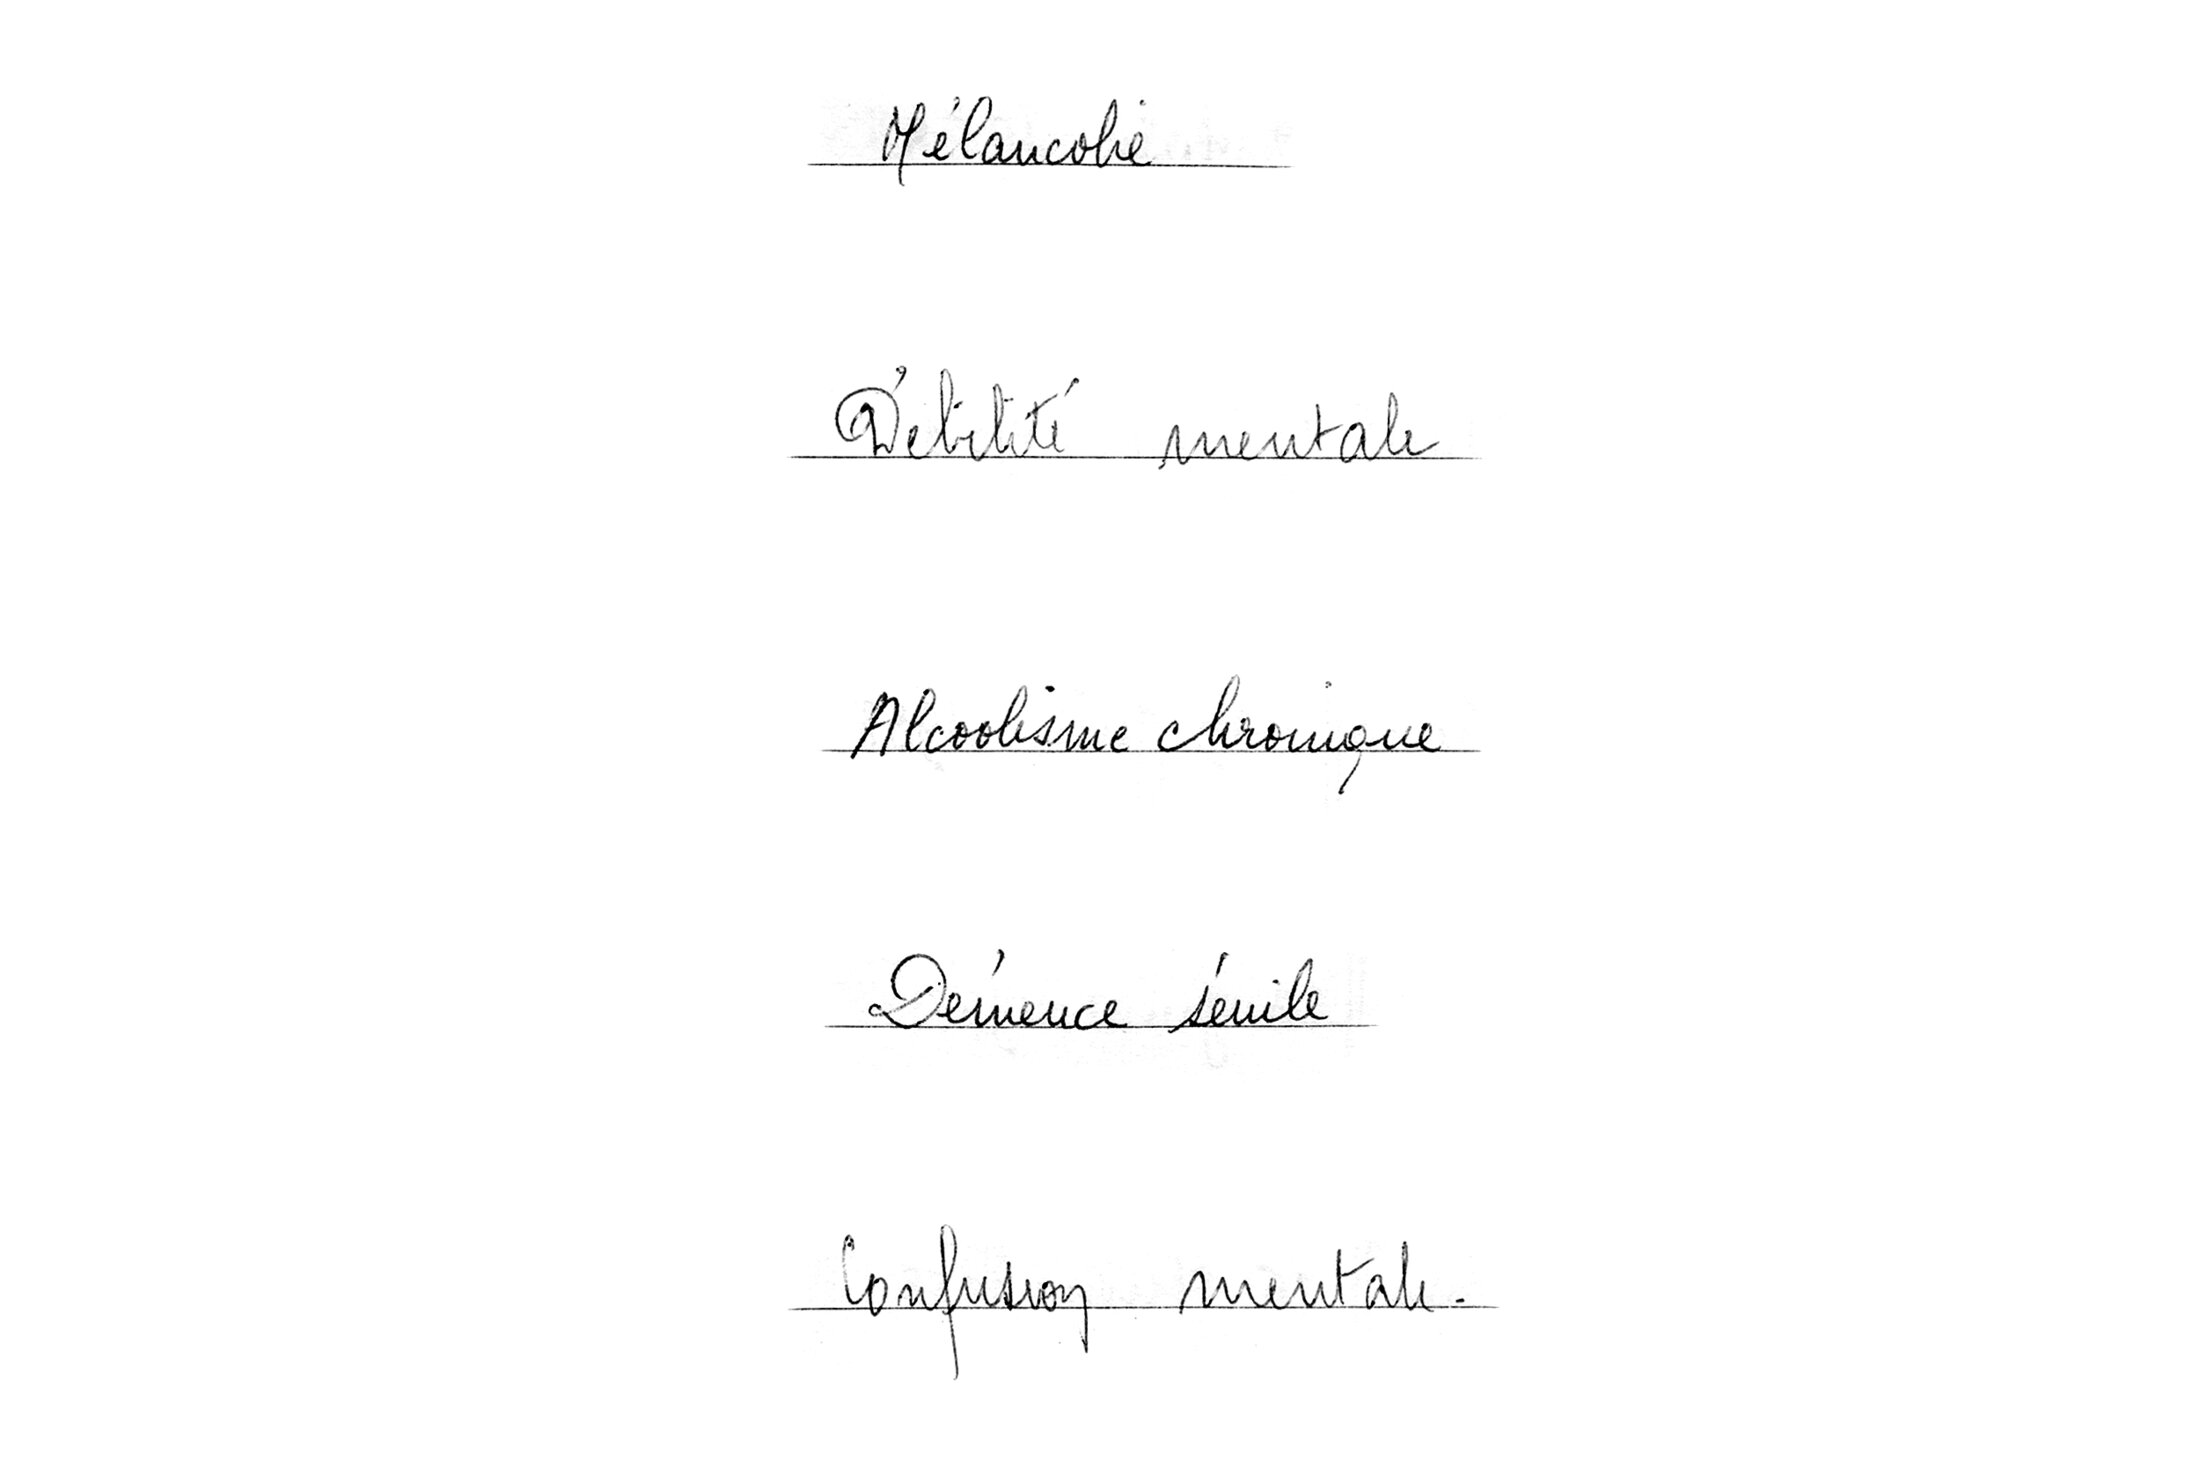 Mélancolie
Débilité mentale
Alcoolisme chronique
Démence sénile
Confusion mentale.